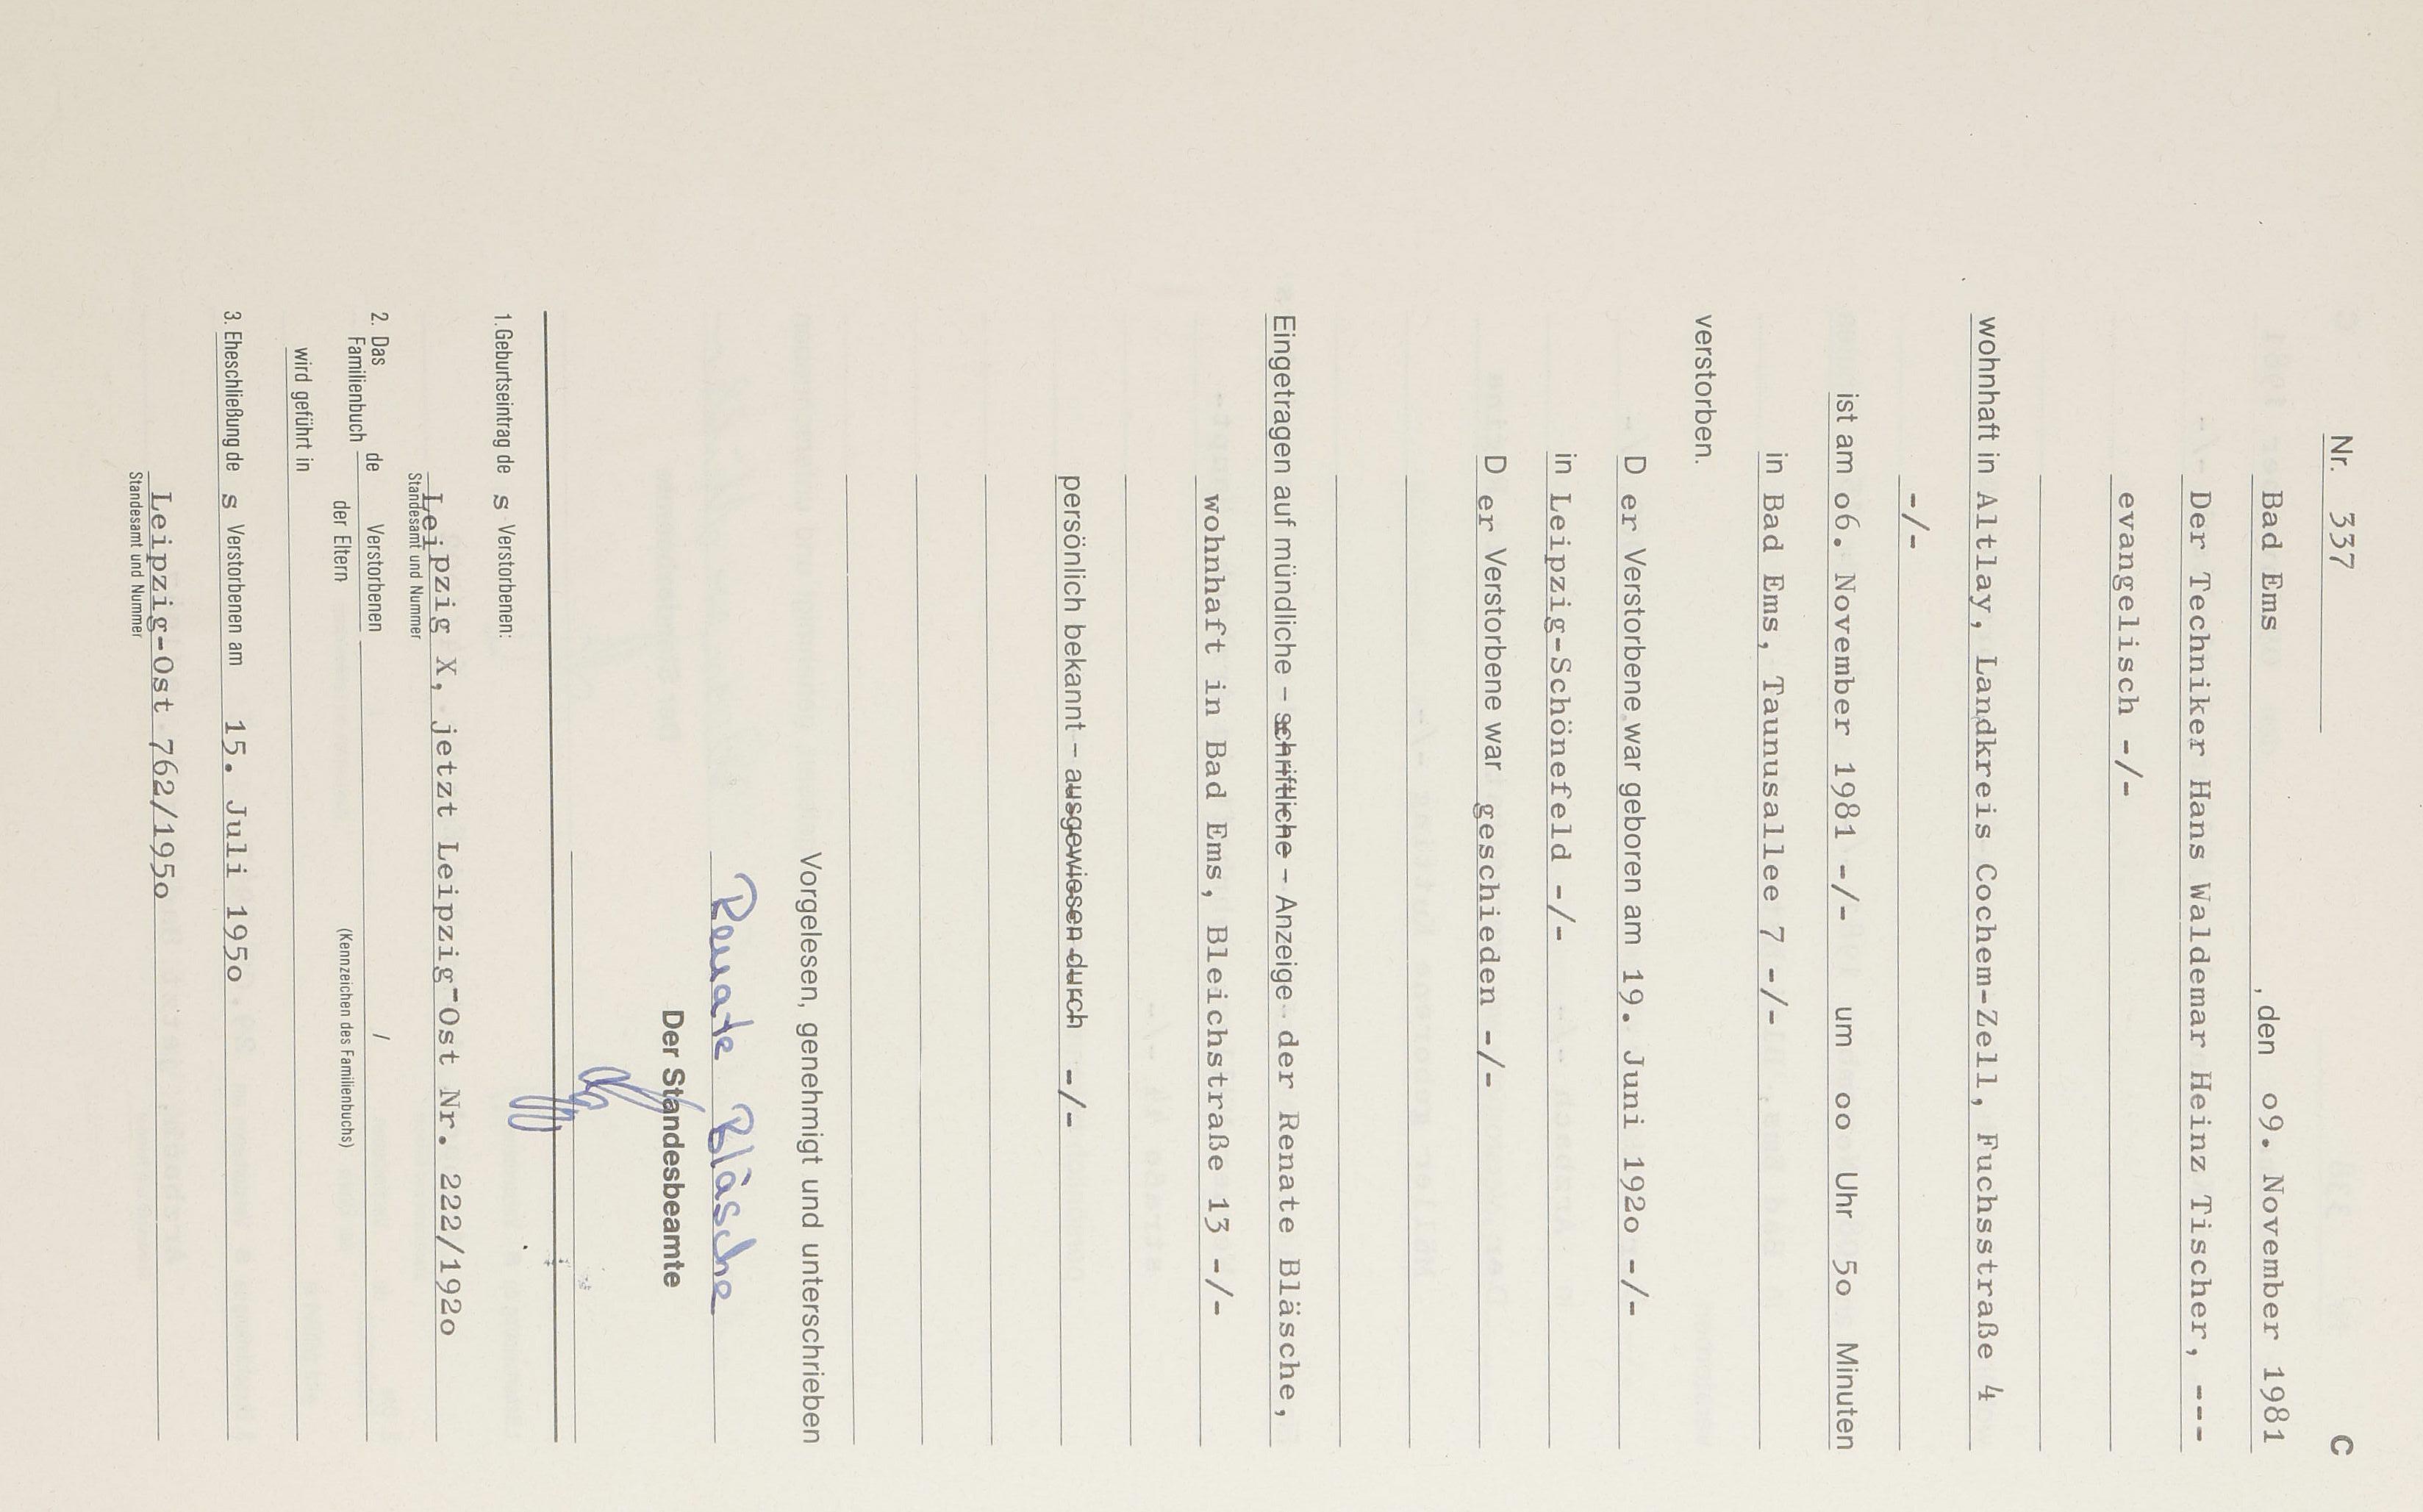 Nr. 337 C
Bad Ems , den o9. November 1981
Der Techniker Hans Waldemar Heinz Tischer, ---
evangelisch -/-
wohnhaft in Altlay, Landkreis Cochem-Zell, Fuchsstraße 4
-/-
ist am o6. November 1981 -/- um oo Uhr 5o Minuten
in Bad Ems, Taunusallee 7 -/-
verstorben.
D er Verstorbene war geboren am 19. Juni 192o -/-
in Leipzig-Schönefeld -/-
D er Verstorbene war geschieden -/-
Eingetragen auf mündliche - schriftliche - Anzeige der Renate Bläsche,
wohnhaft in Bad Ems, Bleichstraße 13 -/-
persönlich bekannt - ausgewiesen durch -/-
Vorgelesen, genehmigt und unterschrieben
Renate Bläsche
Der Standesbeamte
1. Geburtseintrag de s Verstorbenen:
Leipzig X, jetzt Leipzig-Ost Nr. 222/192o
Standesamt und Nummer
2. Das Familienbuch de Verstorbenen /
der Eltern (Kennzeichen des Familienbuchs)
wird geführt in
3. Eheschließung de s Verstorbenen am 15. Juli 195o
Leipzig-Ost 762/195o
Standesamt und Nummer